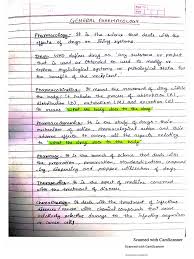 GENERAL PHARMACOLOGY
Pharmacology:- It is the science that deals with the
effects of drugs on living systems.
Drug:- WHO defines drug as "any substance or product
that is used or intended to used to modify or
explore physiological systems or pathological states for
the benefit of the recipient.
Pharmacokinetics:- It means the movement of drug within the
body; it includes the process of absorption (A),
distribution (D), metabolism (M) and excretion (E).
It means "what the body does to the drug".
Pharmacodynamics:- It is the study of drugs - their
mechanism of action, pharmacological action and their
adverse effects. It covers all the aspects relating
to "what the drug does to the body".
Pharmacy:- It is the branch of science that deals with
the preparation, preservation, standardization, compound-
ing, dispensing and proper utilization of drugs.
Therapeutics:- It is the aspect of medicine concerned
with the treatment of diseases.
Chemotherapy:- It deals with the treatment of infectious
diseases / cancer with chemical compounds that cause
relatively selective damage to the infecting organism
or cancer cells.
Scanned with CamScanner
Scanned with CamScanner